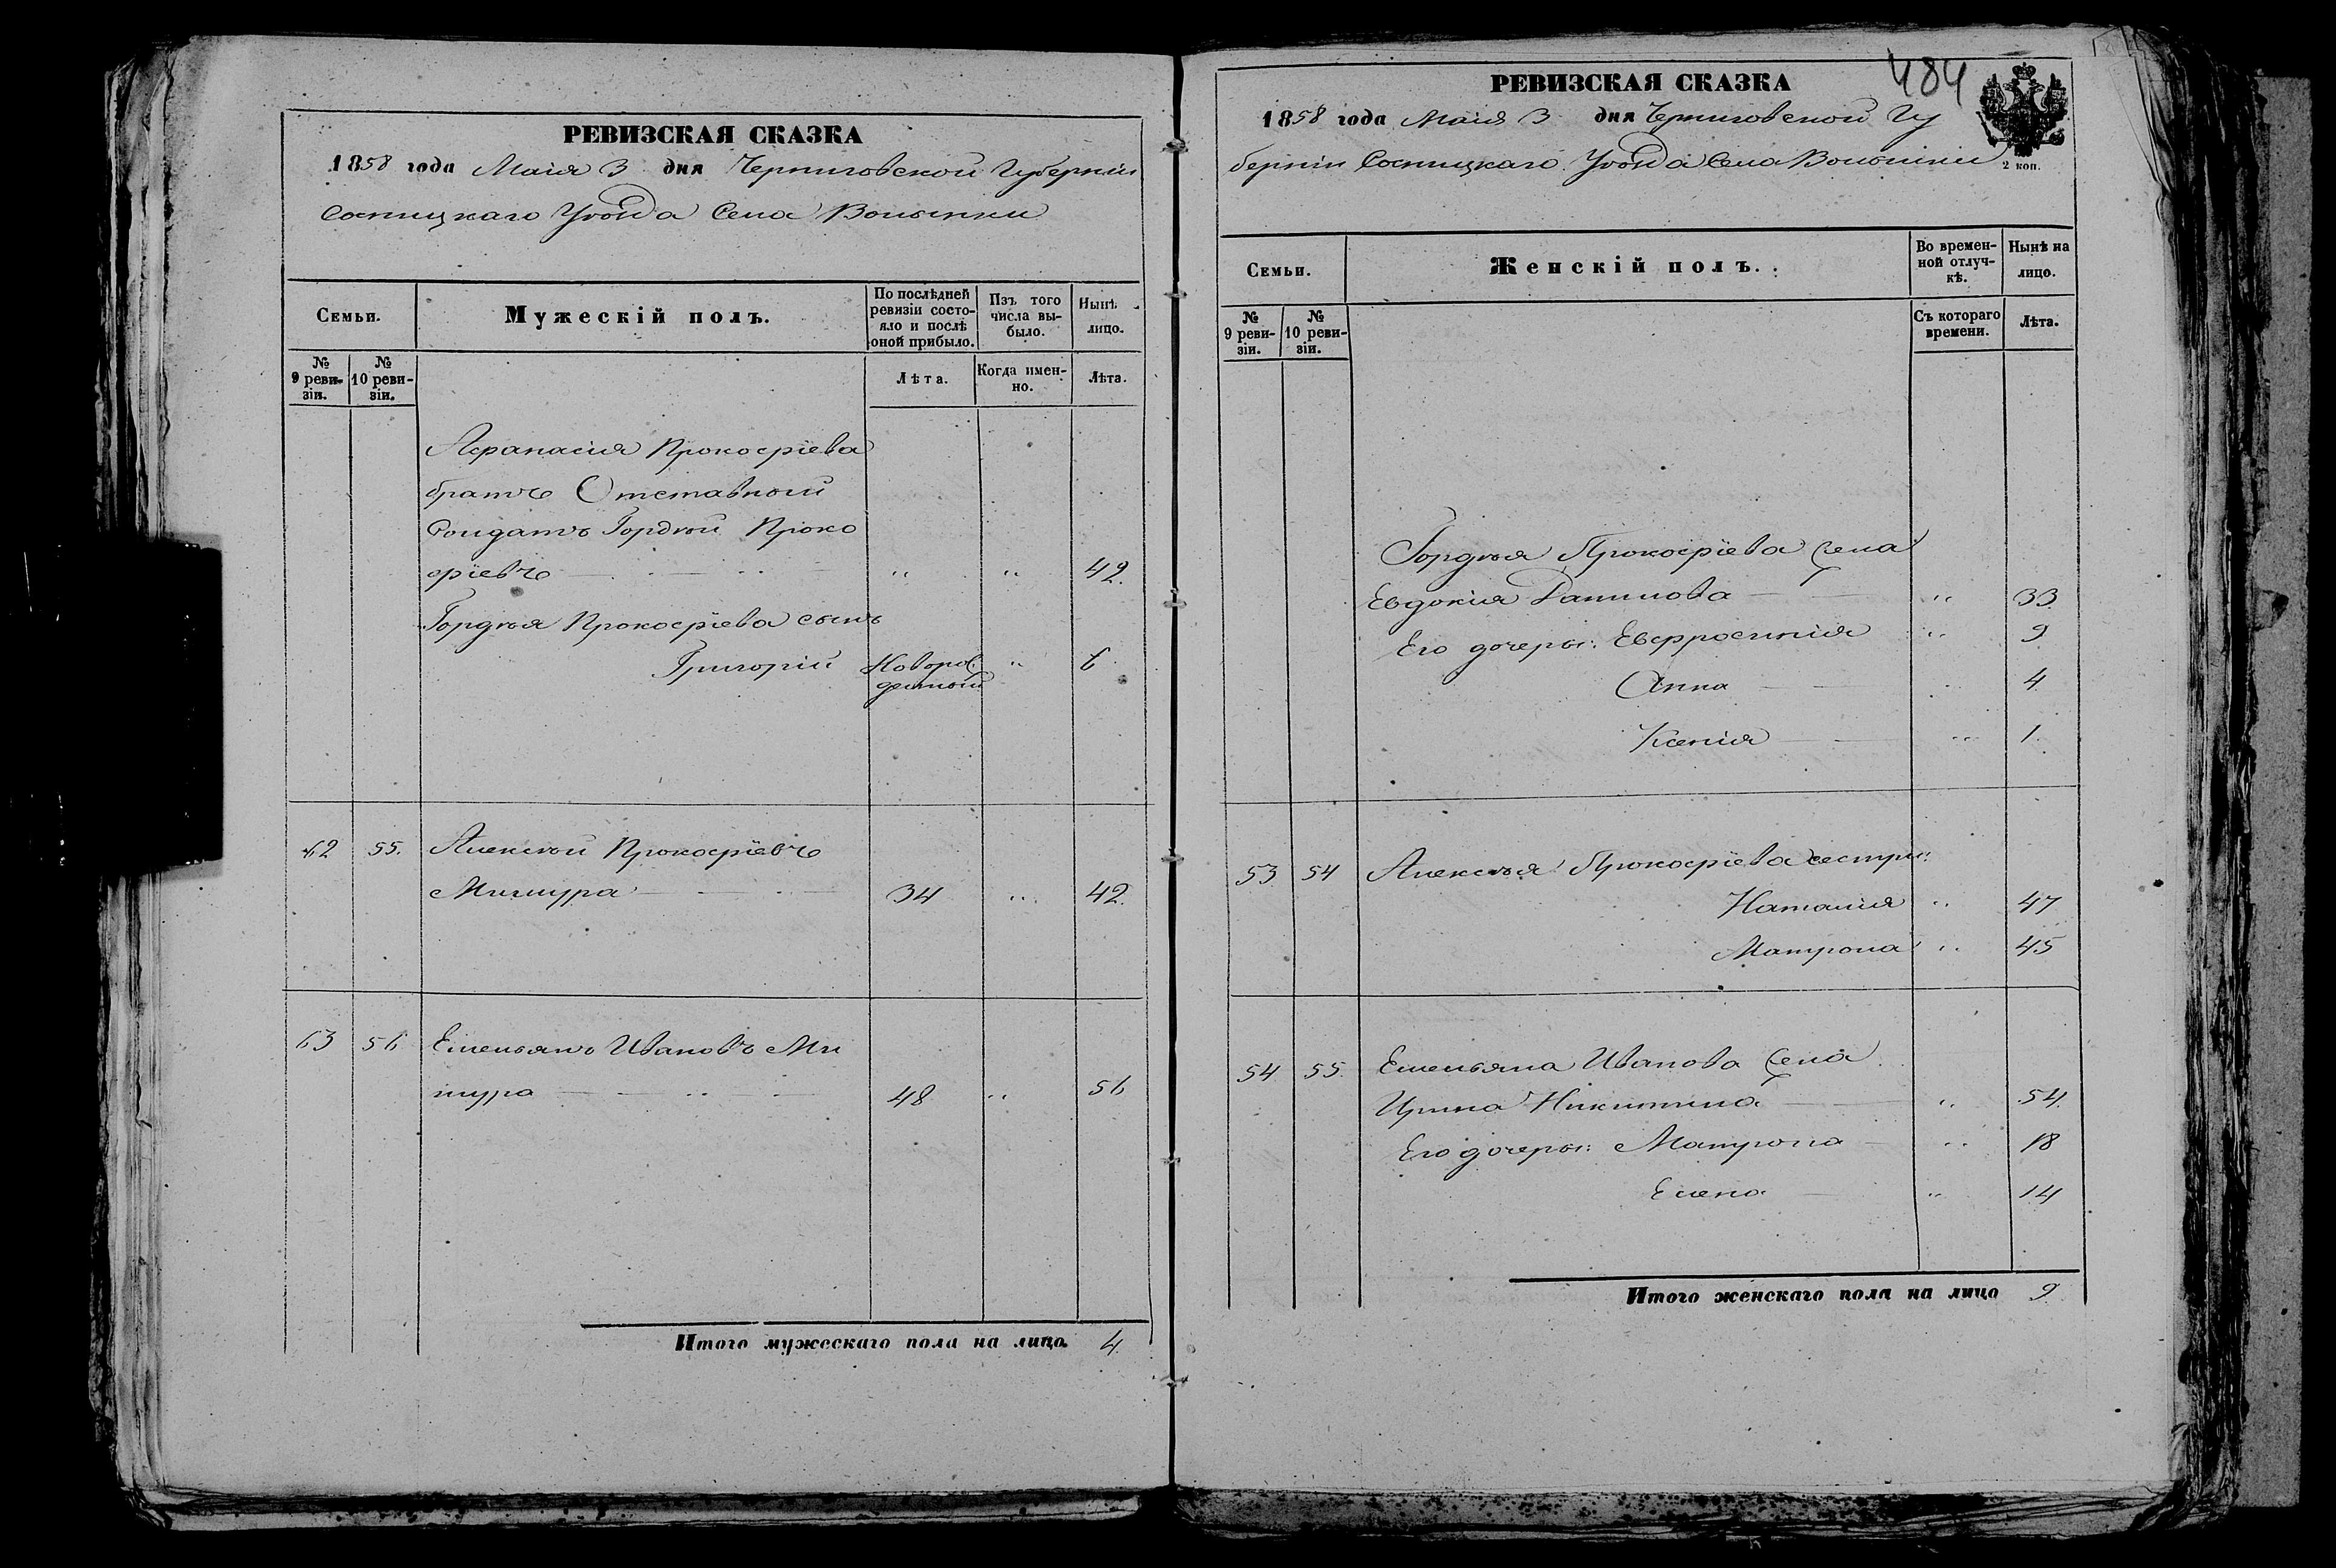 РЕВИЗСКАЯ СКАЗКА
1858 года Маія 3 дня Черниговской Губерніи
Сосницкаго Уѣзда Села Волынки
Семьи.
Мужескій полъ.
По послѣдней ревизіи состояло и послѣ оной прибыло.
Изъ того числа выбыло.
Нынѣ лицо.
№ 9 ревизіи.
№ 10 ревизіи.
Лѣта.
Когда именно.
Лѣта.
Афанасія Прокофіева
братъ Отставной
Солдатъ Гордѣй Проко
фіевъ " " 42.
Гордѣя Прокофіева сынъ
Григорій Новорож
денной " 6
62 55. Алексѣй Прокофіевъ
34 " 42.
63 56 Емельянъ Ивановъ
48 " 56
Итого мужескаго пола на лицо. 4
484
РЕВИЗСКАЯ СКАЗКА
1858 года Маія 3 дня Черниговской Гу
берніи Сосницкаго Уѣзда Села Волынки
2 коп.
Семьи.
Женскій полъ.
Во временной отлучкѣ.
Нынѣ на лицо.
№ 9 ревизіи.
№ 10 ревизіи.
Съ котораго времени.
Лѣта.
Гордѣя Прокофіева жена
Евдокія Данилова " 33.
Его дочеры: Евфросинія " 9
Анна " 4.
Ксенія " 1.
53 54 Алексѣя Прокофіева сестры:
Наталия " 47
Матрона " 45
54 55. Емельяна Иванова жена
Ирина Никитина " 54.
Его дочеры: Матрона " 18
Елена " 14
Итого женскаго пола на лицо 9